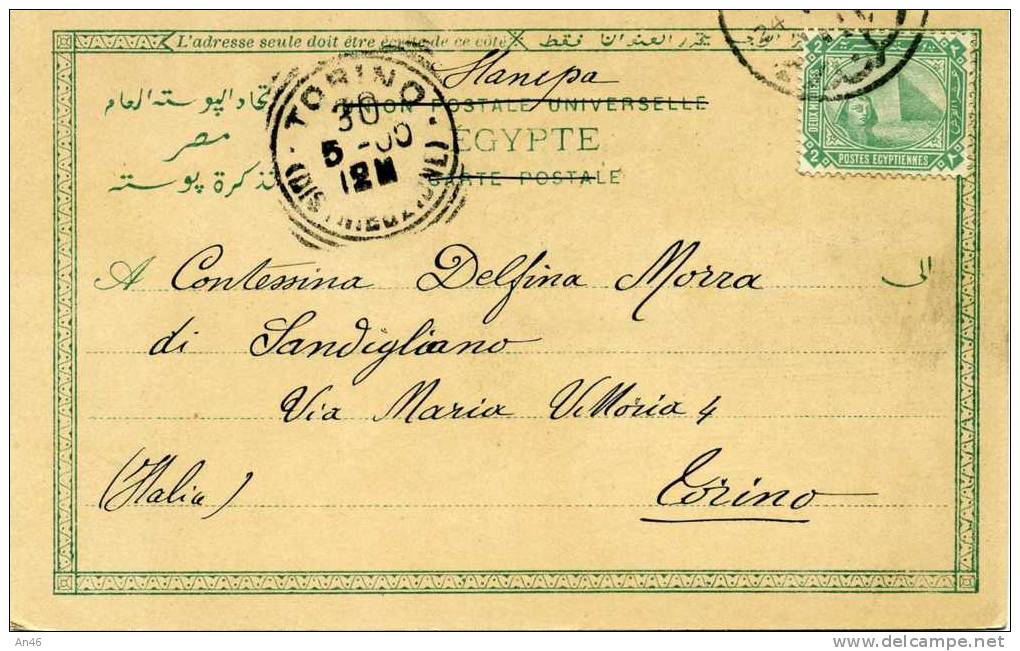 L'adresse seule doit être écrite de ce côté
يحرر العنوان فقط
Stampa
UNION POSTALE UNIVERSELLE
اتحاد البوسته العام
ÉGYPTE
مصر
CARTE POSTALE
تذكرة بوسته
TORINO
30
5 -00
12M
24
DEUX
2
2
POSTES EGYPTIENNES
A Contessina Delfina Morra
الى
di Sandigliano
Via Maria Vittoria 4
(Italia)
Torino
An46
delcampe.net